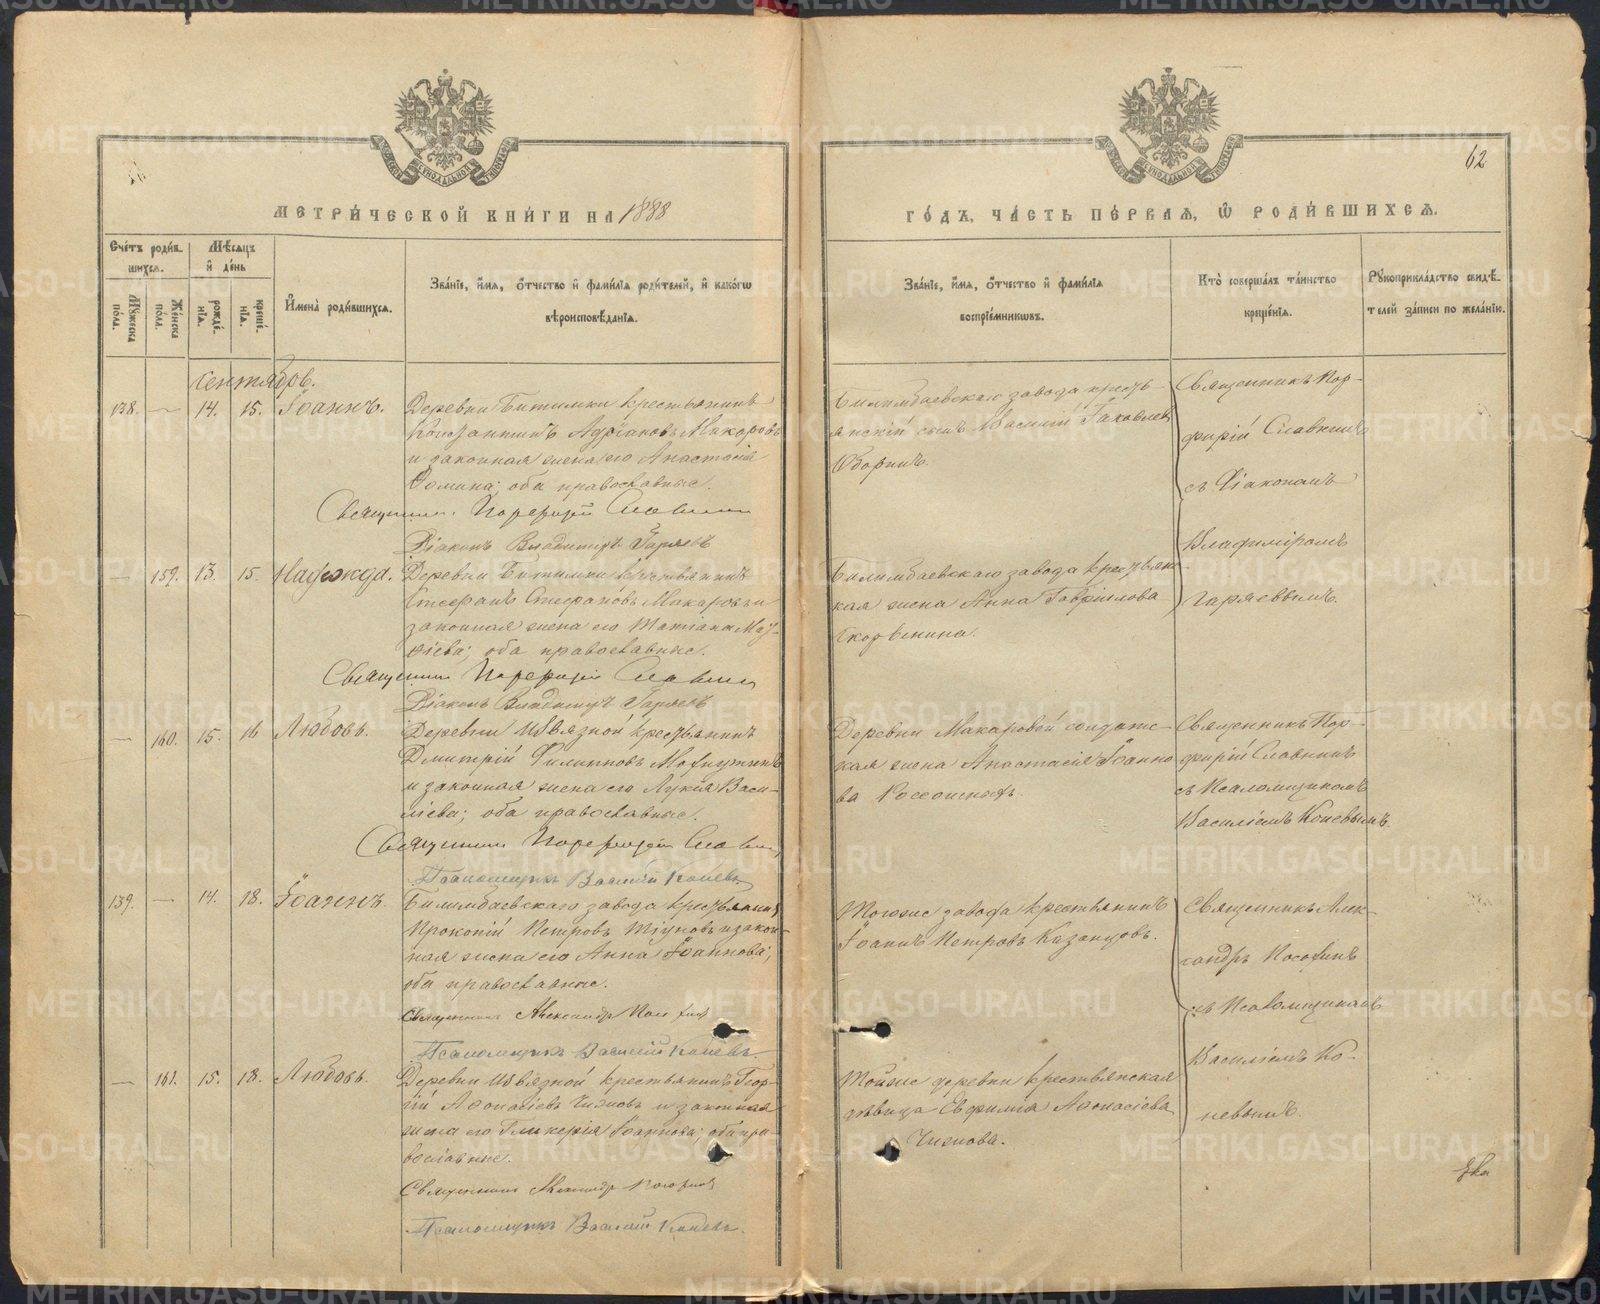 62
МЕТРИ́ЧЕСКОЙ КНИ́ГИ НА 1888
ГО́ДЪ, ЧА́СТЬ ПЕ́РВАЯ, Ѿ РОДИ́ВШИХСЯ.
Сче́тъ роди́в-
шихся.
Мѣ́сяцъ
и҆ де́нь
Му́жеска
по́ла.
Же́нска
по́ла.
рожде́-
нія.
креще́-
нія.
И҆мена̀ роди́вшихся.
Зва́ніе, и҆́мя, ѻ҆́тчество и҆ фами́лія роди́телей, и҆ како́гѡ
вѣроисповѣ́данія.
Зва́ніе, и҆́мя, ѻ҆́тчество и҆ фами́лія
воспріе́мникѡвъ.
Кто̀ соверша́лъ та́инство
креще́нія.
Рꙋкоприкла́дство свидѣ́-
телей за́писи по жела́нію.
Сентябрь.
138. — 14. 15. Іоаннъ.
Деревни Битимки крестьянинъ
Константинъ Адріановъ Макаровъ
и законная жена его Анастасія
Фомина; оба православные.
Священник Порфирій Славнин
Діаконъ Владимиръ Гаряевъ
Билимбаевскаго завода кресть-
янскій сынъ Василій Іаковлев
Оборинъ.
Священникъ Пор-
фирій Славнинъ
съ Діакономъ
Владиміромъ
Гаряевымъ.
— 159. 13. 15. Надежда.
Деревни Битимки крестьянинъ
Стефанъ Стефановъ Макаровъ и
законная жена его Татіана Мат-
ѳіева; оба православные.
Священник Порфирій Славнин
Діаконъ Владимиръ Гаряевъ
Билимбаевскаго завода крестьянс-
кая жена Анна Гавріилова
Скорынина.
— 160. 15. 16 Любовь.
Деревни Извязной крестьянинъ
Дмитрій Филипповъ
и законная жена его Лукія Васи-
ліева; оба православные.
Священник Порфирій Славнин
Псаломщикъ Василій Коневъ
Деревни Макаровой солдатс-
кая жена Анастасія Іоанно-
ва
Священникъ Пор-
фирій Славнинъ
съ Псаломщикомъ
Василіемъ Коневымъ.
139. — 14. 18. Іоаннъ.
Билимбаевскаго завода крестьянинъ
Прокопій Петровъ Тіуновъ и закон-
ная жена его Анна Іоаннова;
оба православные.
Священникъ Александръ
Псаломщикъ Василій Коневъ.
Тогоже завода крестьянинъ
Іоаннъ Петровъ Казанцовъ.
Священникъ Алек-
сандръ
съ Псаломщикомъ
Василіемъ Ко-
невымъ.
— 161. 15. 18. Любовь.
Деревни Извязной крестьянинъ Геор-
гій Аѳонасіевъ Чижовъ и законная
жена его Гликерія Іоаннова; оба пра-
вославные.
Священникъ Александръ
Псаломщикъ Василій Коневъ.
Тойже деревни крестьянская
дѣвица Евфимія Аѳонасіева
Чижова.
METRIKI.GASO-URAL.RU